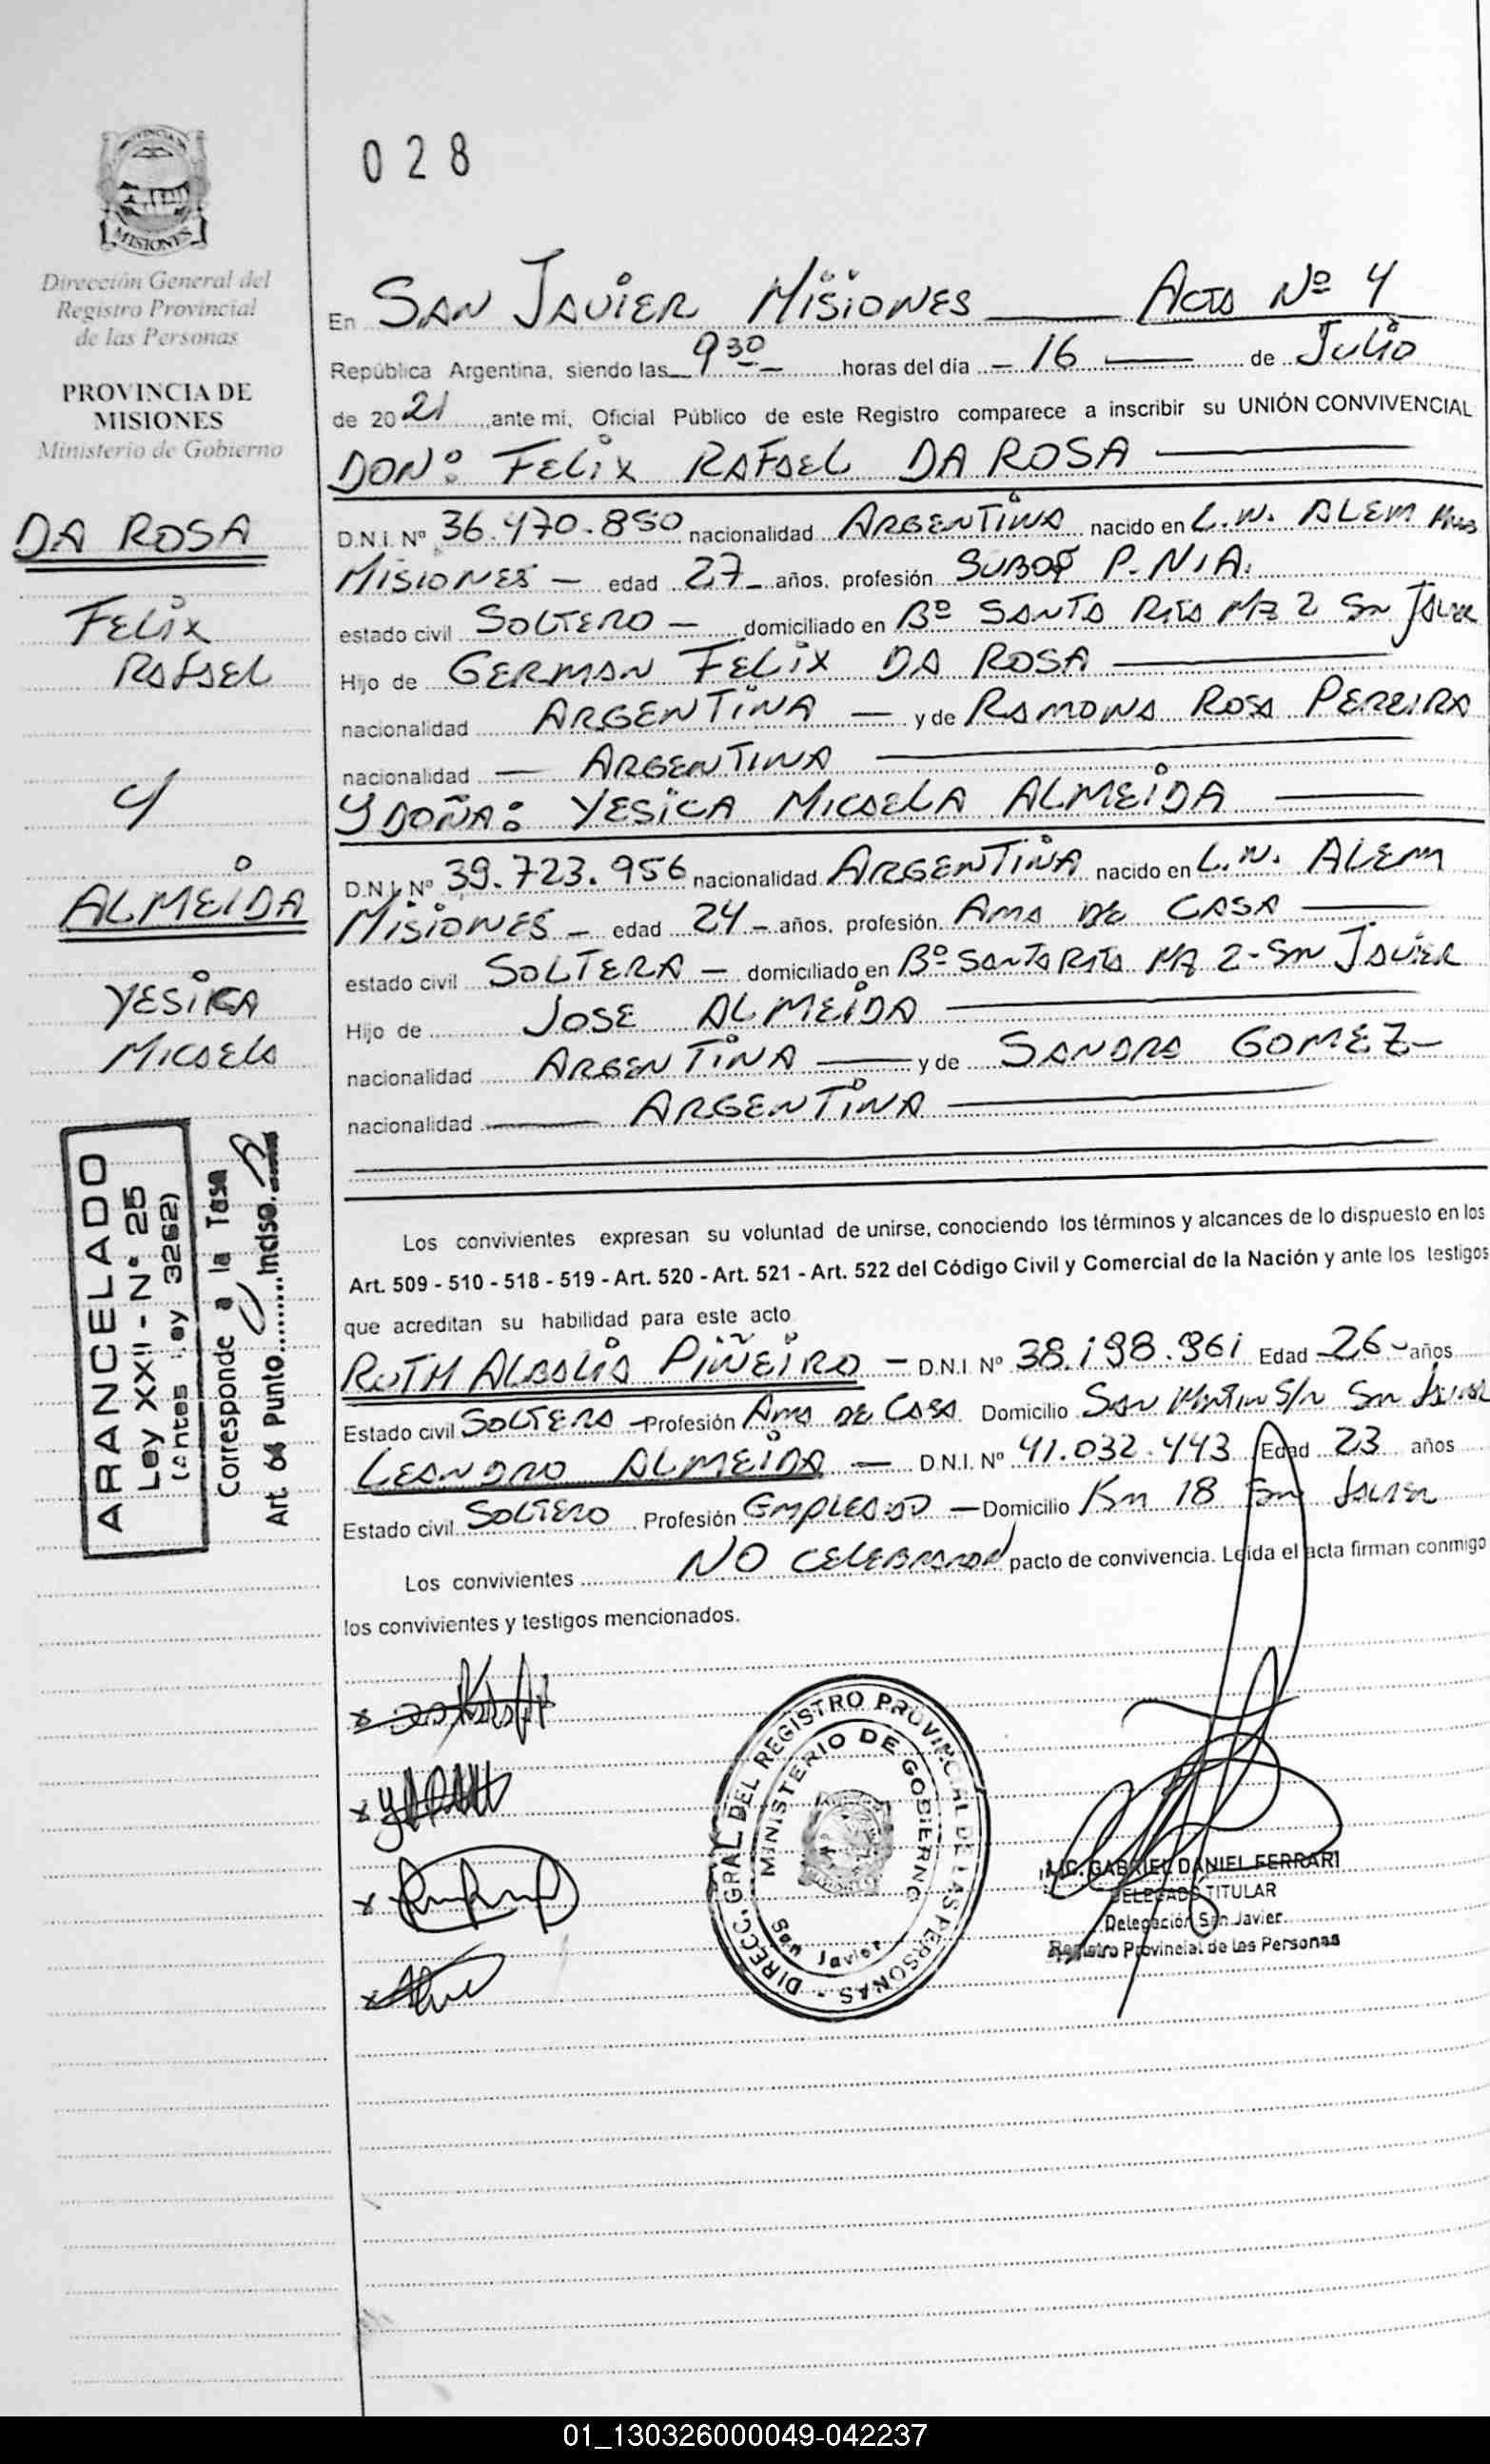 028
PROVINCIA DE
MISIONES
Dirección General del
Registro Provincial
de las Personas
PROVINCIA DE
MISIONES
Ministerio de Gobierno
DA ROSA
FELIX
RAFAEL
Y
ALMEIDA
YESICA
MICAELA
ARANCELADO
Ley XXII - N° 25
(Antes Ley 3262)
Corresponde a la Tasa
Art. 64 Punto.........Inciso
En SAN JAVIER MISIONES ACTA Nº 4
República Argentina, siendo las 9 30 horas del día - 16 de JULIO
de 20 21 ante mi, Oficial Público de este Registro comparece a inscribir su UNIÓN CONVIVENCIAL
DON: FELIX RAFAEL DA ROSA
D.N.I. Nº 36.470.850 nacionalidad ARGENTINA nacido en L.N. ALEM
MISIONES - edad 27 - años, profesión P.N.A.
estado civil SOLTERO - domiciliado en Bº SANTA RITA MZ 2 Sn JAVIER
Hijo de GERMAN FELIX DA ROSA
nacionalidad ARGENTINA - y de RAMONA ROSA PEREIRA
nacionalidad - ARGENTINA
Y DOÑA: YESICA MICAELA ALMEIDA
D.N.I. Nº 39.723.956 nacionalidad ARGENTINA nacido en L.N. ALEM
MISIONES - edad 24 - años, profesión AMA DE CASA
estado civil SOLTERA - domiciliado en Bº SANTA RITA MZ 2 - Sn JAVIER
Hijo de JOSE ALMEIDA
nacionalidad ARGENTINA y de SANDRA GOMEZ -
nacionalidad ARGENTINA
Los convivientes expresan su voluntad de unirse, conociendo los términos y alcances de lo dispuesto en los
Art. 509 - 510 - 518 - 519 - Art. 520 - Art. 521 - Art. 522 del Código Civil y Comercial de la Nación y ante los testigos
que acreditan su habilidad para este acto
RUTH PIÑEIRO - D.N.I. Nº 38.198.961 Edad 26 - años
Estado civil SOLTERA - Profesión AMA DE CASA Domicilio SAN MARTIN S/N Sn JAVIER
LEANDRO ALMEIDA - D.N.I. Nº 41.032.443 Edad 23 años
Estado civil SOLTERO Profesión EMPLEADO - Domicilio Km 18 San JAVIER
Los convivientes NO CELEBRARON pacto de convivencia. Leída el acta firman conmigo
los convivientes y testigos mencionados.
DIRECC. GRAL DEL REGISTRO PROVINCIAL DE LAS PERSONAS -
MINISTERIO DE GOBIERNO
San Javier
LIC. GABRIEL DANIEL FERRARI
DELEGADO TITULAR
Delegación San Javier
Registro Provincial de las Personas
01_130326000049-042237